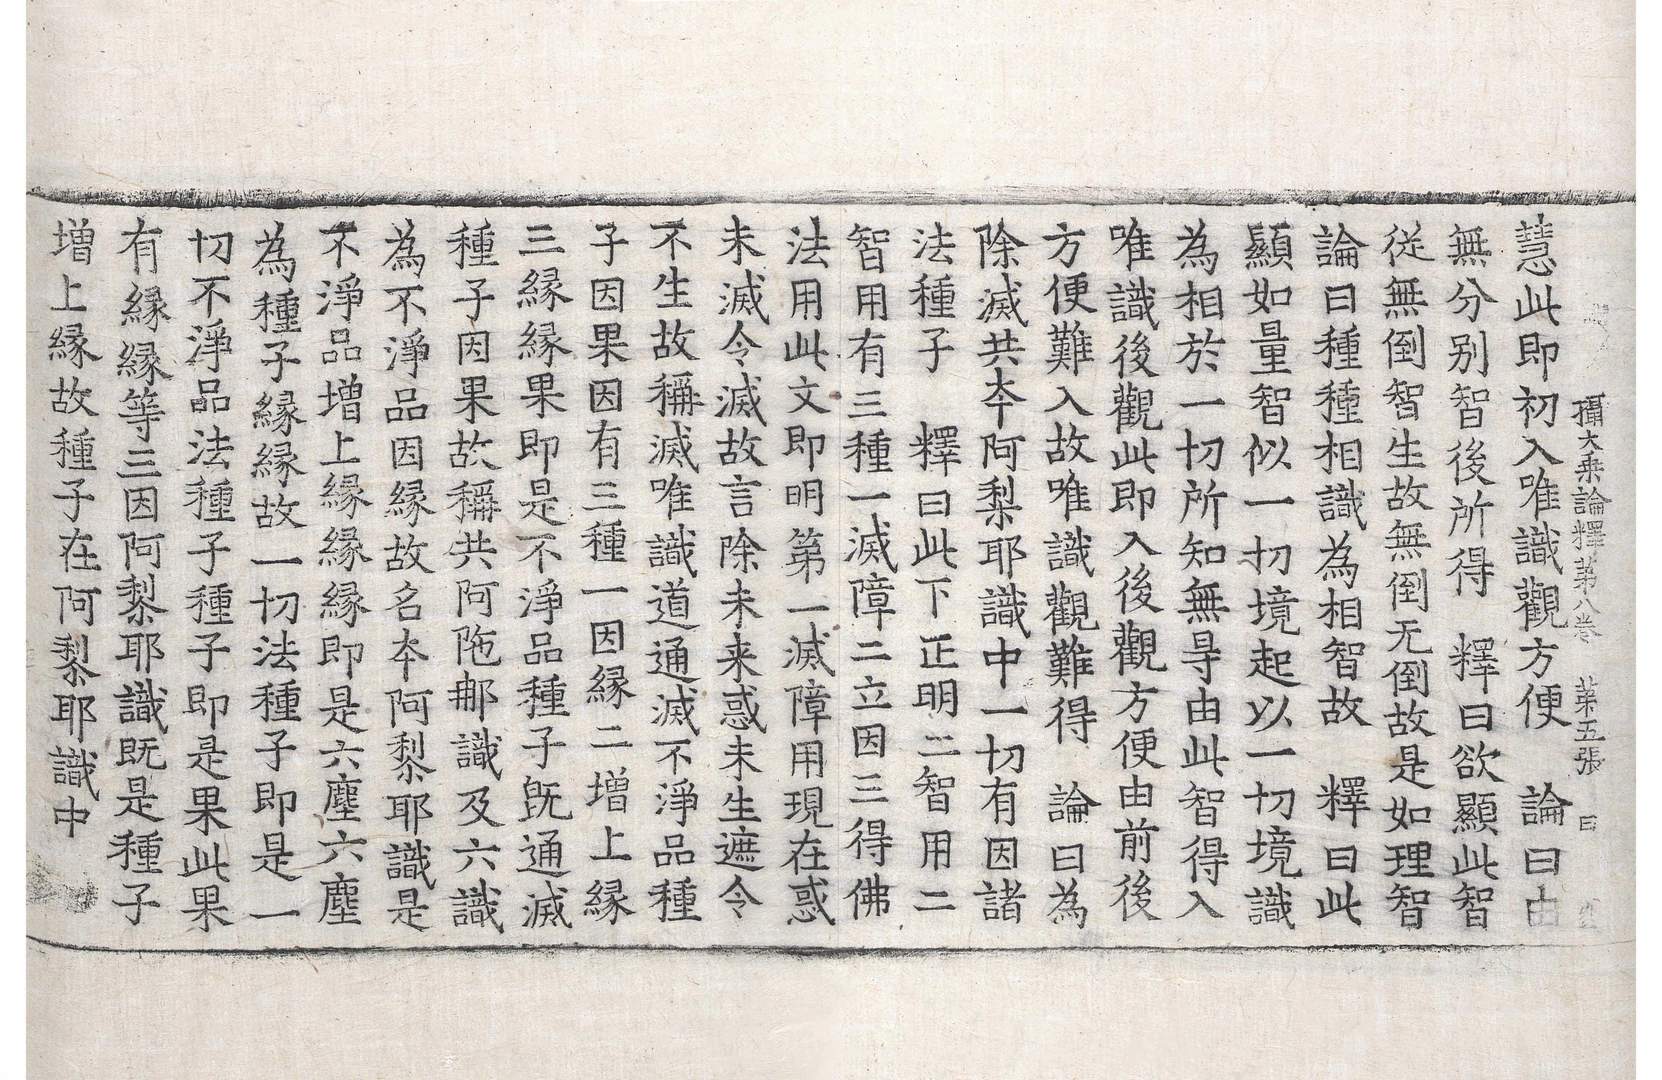 攝大乘論釋第八卷　第五張　日
慧此即初入唯識觀方便　論曰由
無分别智後所得　釋曰欲顯此智
從無倒智生故無倒无倒故是如理智
論曰種種相識為相智故　釋曰此
顯如量智似一切境起以一切境識
為相於一切所知無㝵由此智得入
唯識後觀此即入後觀方便由前後
方便難入故唯識觀難得　論曰為
除滅共夲阿梨耶識中一切有因諸
法種子　釋曰此下正明二智用二
智用有三種一滅障二立因三得佛
法用此文即明第一滅障用現在惑
未滅令滅故言除未来惑未生遮令
不生故稱滅唯識道通滅不淨品種
子因果因有三種一因縁二增上縁
三縁縁果即是不淨品種子既通滅
種子因果故稱共阿陁那識及六識
為不淨品因縁故名夲阿梨耶識是
不淨品增上縁縁縁即是六塵六塵
為種子縁縁故一切法種子即是一
切不淨品法種子種子即是果此果
有縁縁等三因阿黎耶識既是種子
增上縁故種子在阿黎耶識中